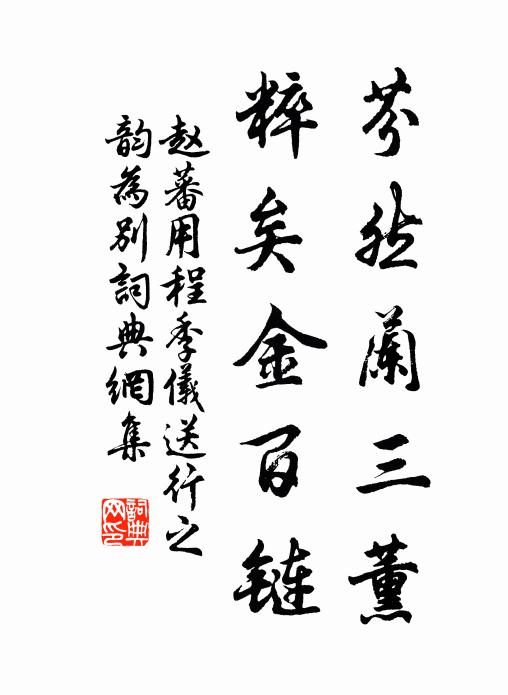 芬然蘭三薰
粹矣金百鏈
赵蕃用程季儀送行之
韵為别詞典網集
詞典
网印